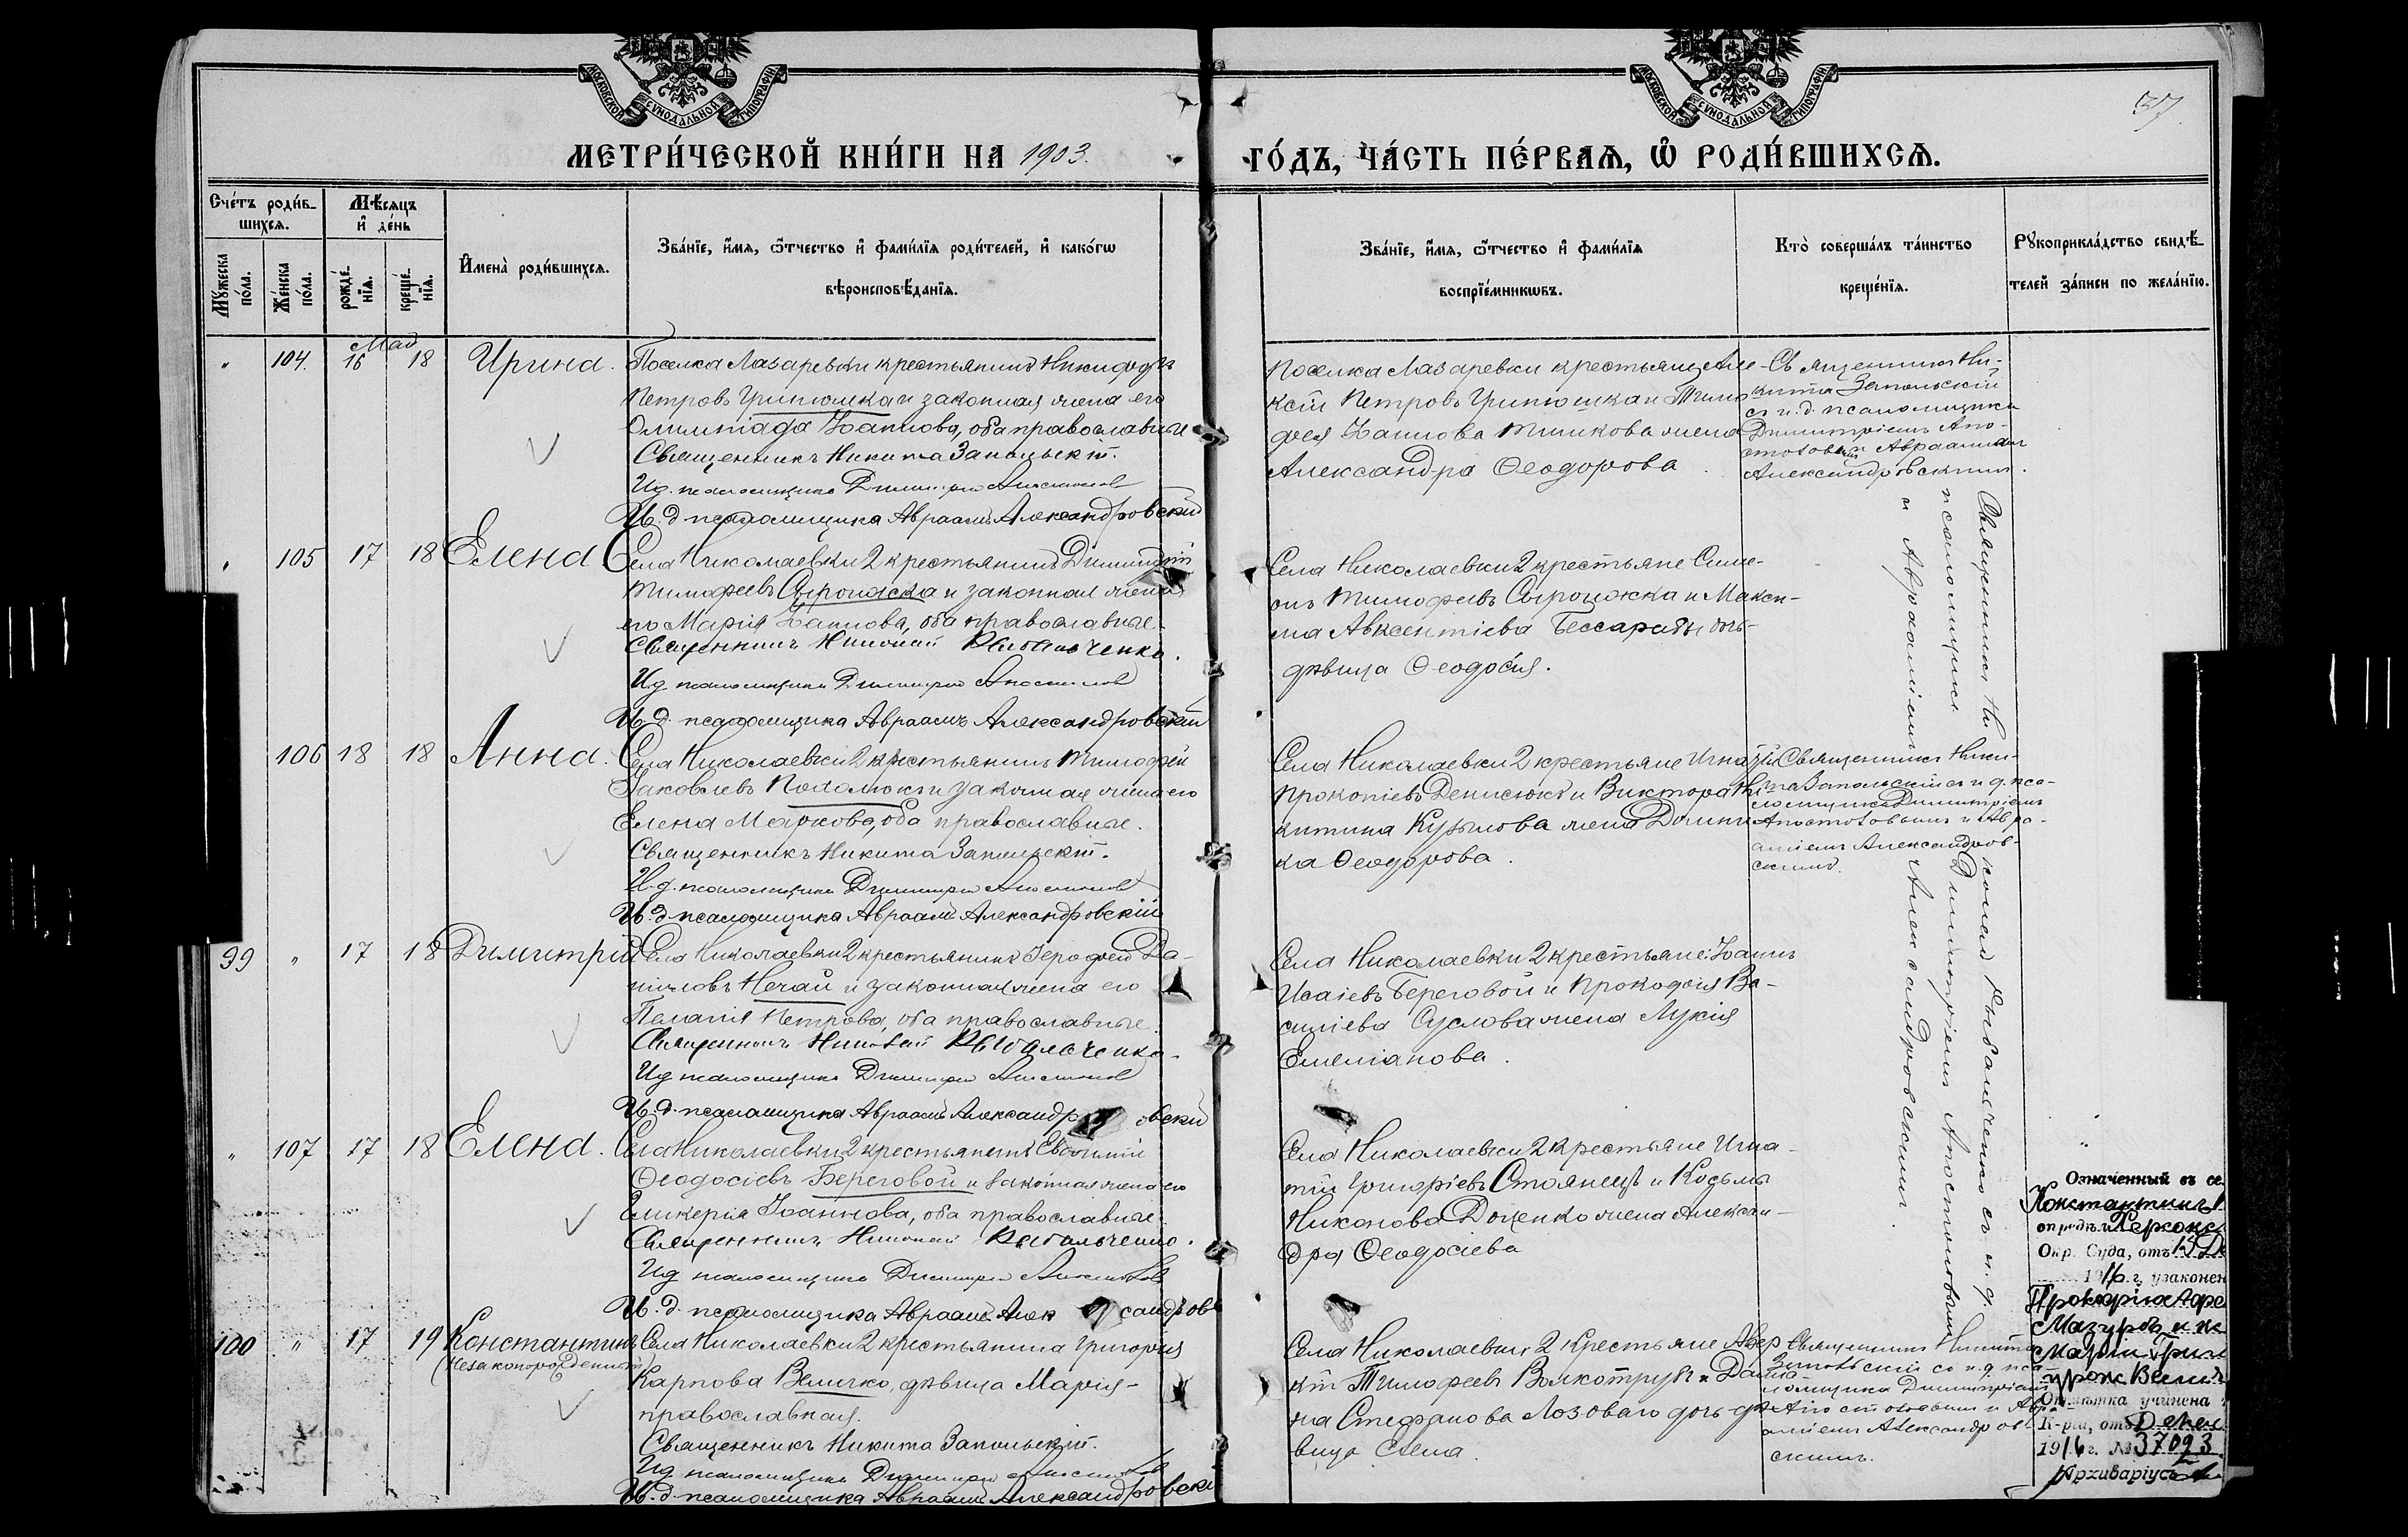 МОСКОВСКОЙ СѴНОДАЛЬНОЙ ТИПОГРАФІИ
МОСКОВСКОЙ СѴНОДАЛЬНОЙ ТИПОГРАФІИ
37
МЕТРИ́ЧЕСКОЙ КНИ́ГИ НА 1903.
ГО́ДЪ, ЧА́СТЬ ПЕ́РВАѦ, Ѡ РОДИ́ВШИХСѦ.
Сче́тъ роди́в-
шихсѧ.
Мѣ́сѧцъ
и҆ де́нь
Мꙋ́жеска
по́ла.
Же́нска
по́ла.
рожде́-
нїѧ.
креще́-
нїѧ.
И҆мена̀ роди́вшихсѧ.
Зва́нїе, и҆́мѧ, ѻ҆́тчество и҆ фами́лїѧ роди́телей, и҆ како́гѡ
вѣроисповѣ́данїѧ.
Зва́нїе, и҆́мѧ, ѻ҆́тчество и҆ фами́лїѧ
воспрїе́мникѡвъ.
Кто̀ соверша́лъ та́инство
креще́нїѧ.
Рꙋкоприкла́дство свидѣ́-
телей за́писи по жела́нїю.
Мая
" 104. 16 18 Ирина.
Поселка Лазаревки крестьянинъ Никифоръ
Петровъ Гринюшка и законная жена его
Олимпіада Іоаннова, оба православные
Священникъ Никита Запольскій.
И.д. псаломщика Димитрій Апостоловъ
И.д. псаломщика Авраамій Александровскій
Поселка Лазаревки крестьяне Але-
ксій Петровъ Гринюшка и Тимо
фея Іоаннова жена
Александра Ѳеодорова
Священникъ Ни-
кита Запольскій
съ и.д. псаломщика
Димитріемъ Апо-
столовымъ и Авраамiемъ
Александровскимъ.
" 105 17 18 Елена
Села Николаевки 2 крестьянинъ Димитрій
Тимофеевъ и законная жена
его Марія Іоаннова, оба православные.
Священникъ Николай Рыбальченко.
И.д. псаломщика Димитрій Апостоловъ
И.д. псаломщика Авраамъ Александровскій
Села Николаевки 2 крестьяне Симе-
онъ Тимофеевъ и Макси-
ма Авксентіева Бессарабы дочь
дѣвица Ѳеодосія.
Священникъ Николай Рыбальченко съ и.д.
псаломщика Димитріемъ Апостоловымъ
и Авраамiемъ Александровскимъ.
106 18 18 Анна.
Села Николаевки 2 крестьянинъ Тимофей
Іаковлевъ и законная жена его
Елена Маркова, оба православные.
Священникъ Никита Запольскій.
И.д. псаломщика Димитрій Апостоловъ
И.д. псаломщика Авраамій Александровскій
Села Николаевки 2 крестьяне Игнатій
Прокопіевъ Денисюкъ и Виктора Ни
китина Курылова жена Домни
ка Ѳеодорова.
Священникъ Ники-
та Запольскій съ и.д. пса-
ломщика Димитріемъ
Апостоловымъ и Авра-
аміемъ Александров-
скимъ.
99 " 17 18 Димитрій
Села Николаевки 2 крестьянинъ Іерофей Да-
ниловъ Нечай и законная жена его
Пелагія Петрова, оба православные.
Священникъ Николай Рыбальченко.
И.д. псаломщика Димитрій Апостоловъ
И.д. псаломщика Авраамій Александровскій
Села Николаевки 2 крестьяне: Іоаннъ
Исаіевъ Береговой и Прокофія Ва-
силіева Суслова жена Лукія
Емеліанова.
" 107 17 18 Елена.
Села Николаевки 2 крестьянинъ Евфимій
Ѳеодосіевъ Береговой и законная жена его
Гликерія Іоаннова, оба православные.
Священникъ Николай Рыбальченко.
И.д. псаломщика Димитрій Апостоловъ
И.д. псаломщика Авраамій Александров
Села Николаевки 2 крестьяне Игна-
тій Григоріевъ Стоянецъ и Козьмы
Никонова Доценко жена Алексан-
дра Ѳеодосіева
100 " 17 19 Константинъ
(незаконорожденный)
Села Николаевки 2 крестьянина Григорія
Карпова Величко, дѣвица Марія-
православная.
Священникъ Никита Запольскій.
И.д. псаломщика Димитрій Апостоловъ
И.д. псаломщика Авраамій Александровскій
Села Николаевки 2 крестьяне Авер
кій Тимофеевъ Волкотрубъ и
на Стефанова Лозоваго дочь дѣ-
вица
Священникъ Никита
Запольскій съ и.д. пса-
ломщика Димитріемъ
Апостоловымъ и Авра-
аміемъ Александров-
скимъ.
Означенный въ се
Константинъ
опредѣл. Херсонс
Окр. Суда, отъ 15 Де
1916 г. узаконен
Прокофія
Мазуръ и
Маріи Гри
урож. Велич
Отмѣтка учинена
К-ріи, отъ Декаб
1916 г. № 37093
Архиваріусъ